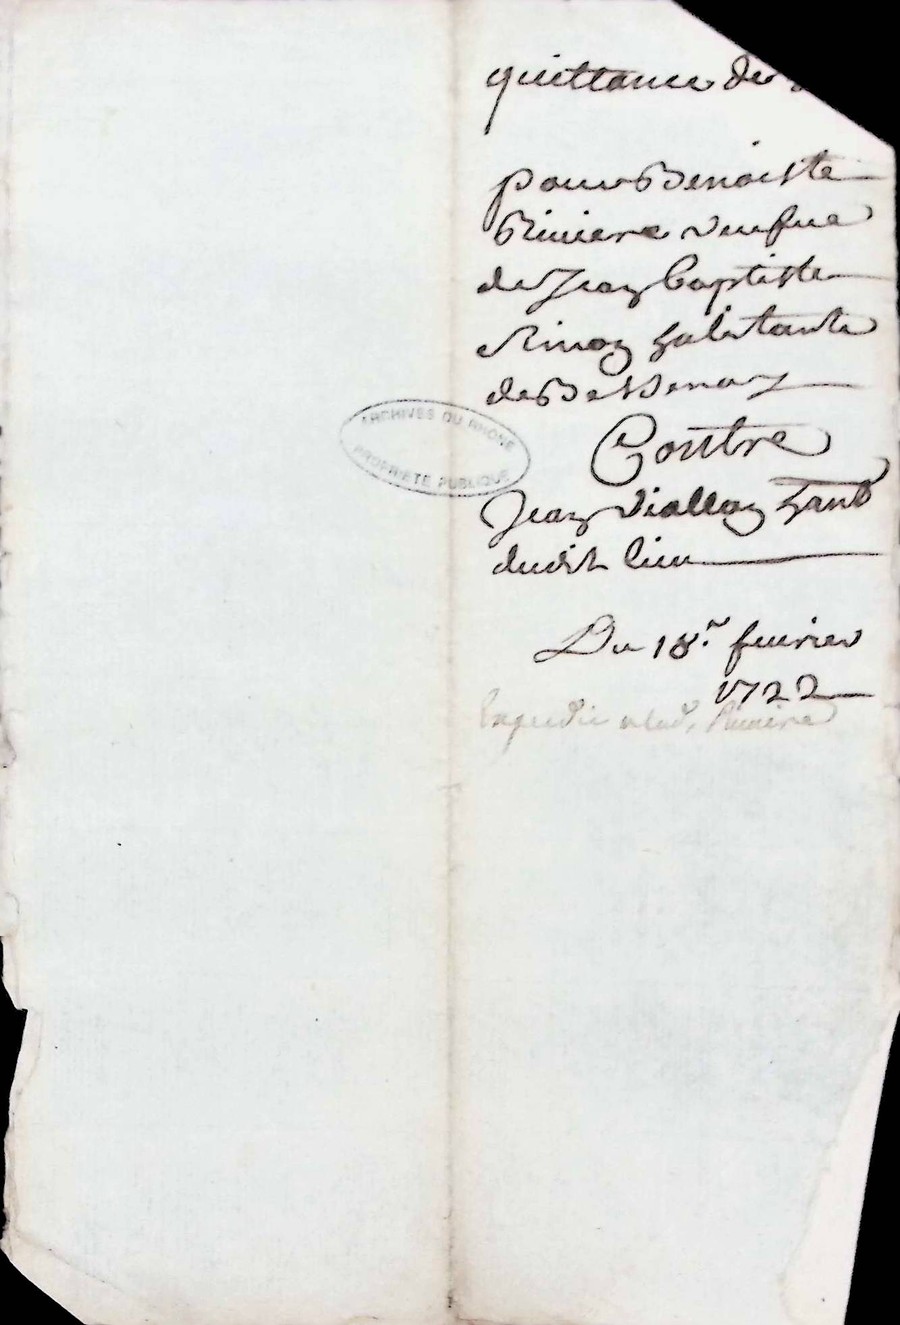 quittance de
pour Benoiste
Riviere veufue
de Jean baptiste
habitante
de Bessenay
Contre
Jean Viallon hant
dudit lieu
Du 18.e feurier
1722
Expedié a lad. Riviere
ARCHIVES DU RHÔNE
PROPRIÉTÉ PUBLIQUE